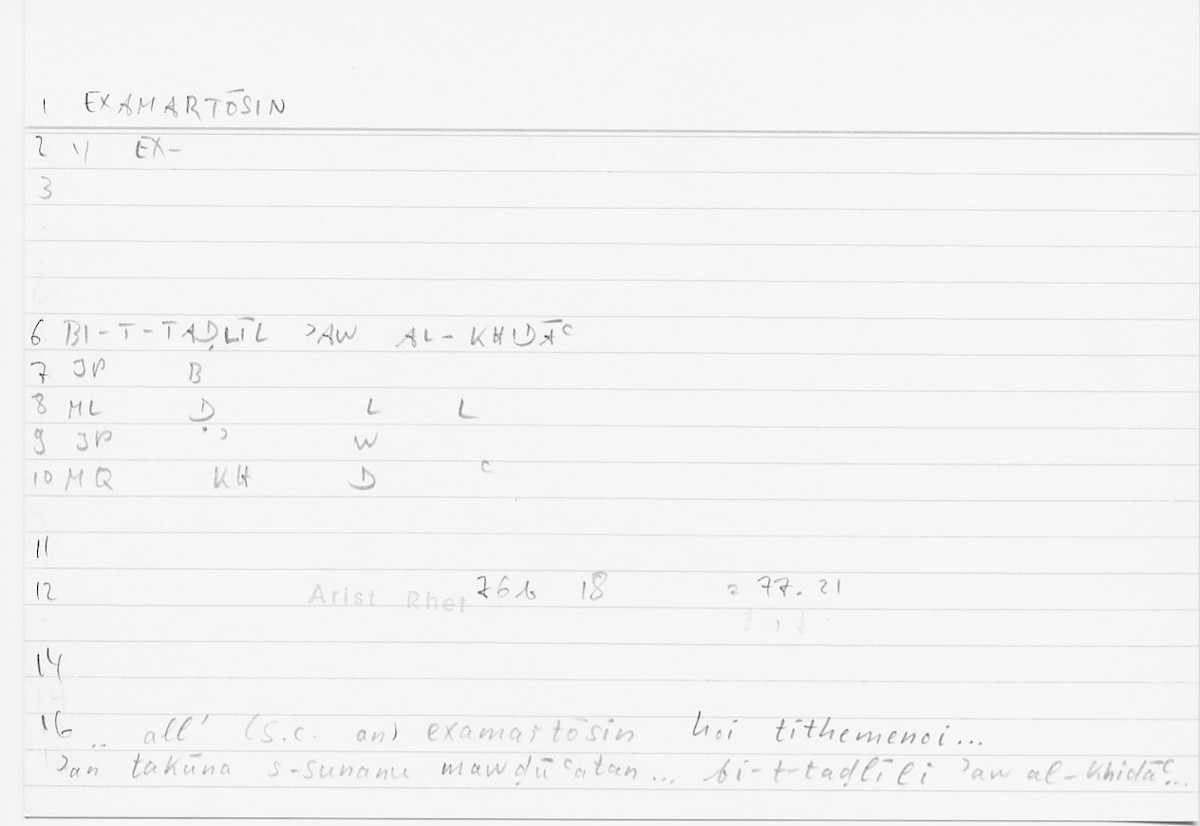 1 EXAMARTŌSIN
2 1) EX-
3
6 BI-T-TAḌLĪL ʾAW AL-KHIDĀʿ
7 JP B
8 ML Ḍ L L
9 JP ʾ W
10 MQ KH D ʿ
11
12 Arist Rhet 76b 18 = 77.21
14
16 .. all' (s.c. an) examartōsin hoi tithemenoi...
ʾan takūna s-sunanu mawḍūʿatan... bi-t-taḍlīli ʾaw al-khidāʿ...